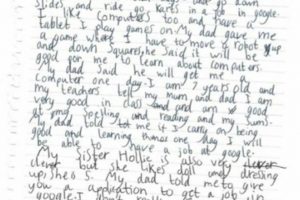 slides and ride go karts in a in google
I like computers too and have a
tablet I play games on. My dad gave me
a game where I have to move a robot up
and down squares he said it will be
good for me to learn about computers
dad said he will get me a
computer one day. I am 7 years old and
my teachers tell my Mum and dad I am
very good in class and am good
at my spelling and reading and my sums.
dad told me if I carry on being
good and learning then one day I will
be able to have a job at google.
My sister Hollie is also very
clever but she likes dolls and dressing
up, she is 5. My dad told me to give
you a application to get a job
google. I don't really